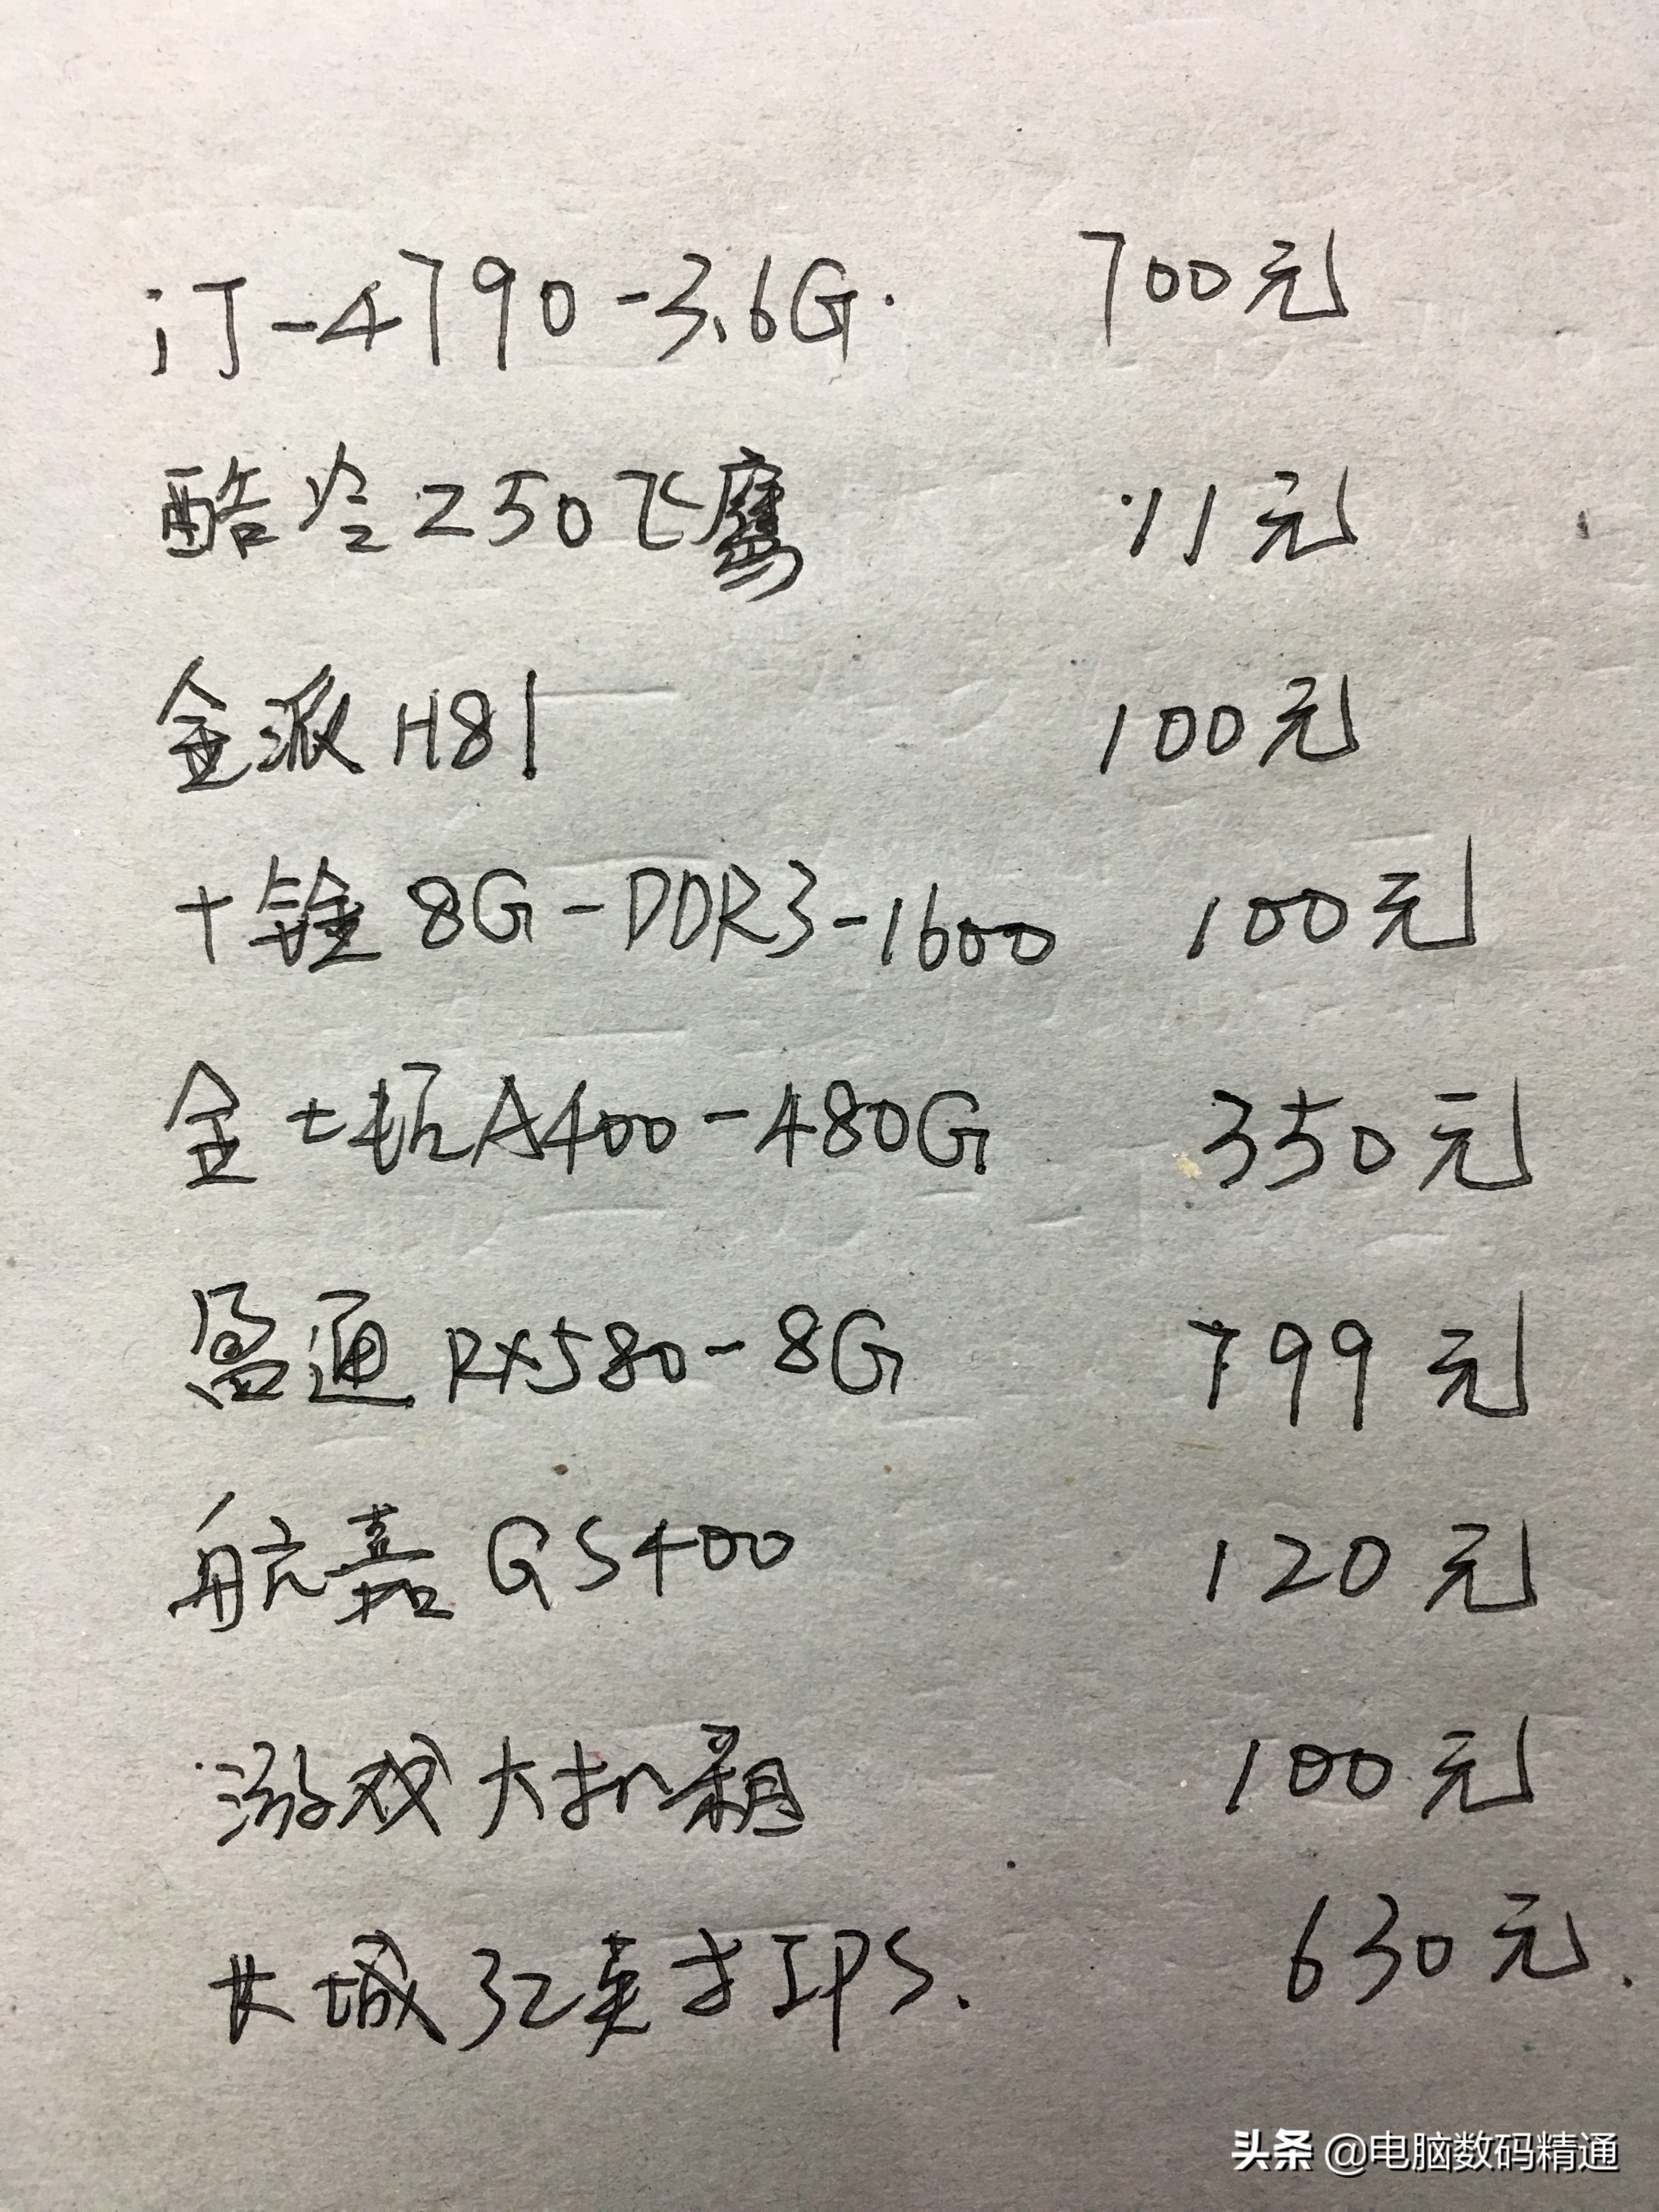 i7-4790-3.6G. 700元
酷冷Z50飞鹰 11元
金派H81 100元
十铨8G-DDR3-1600 100元
金士顿A400-480G 350元
盈通RX580-8G 799元
航嘉GS400 120元
游戏大机箱 100元
长城32英寸IPS. 630元.
头条 @电脑数码精通